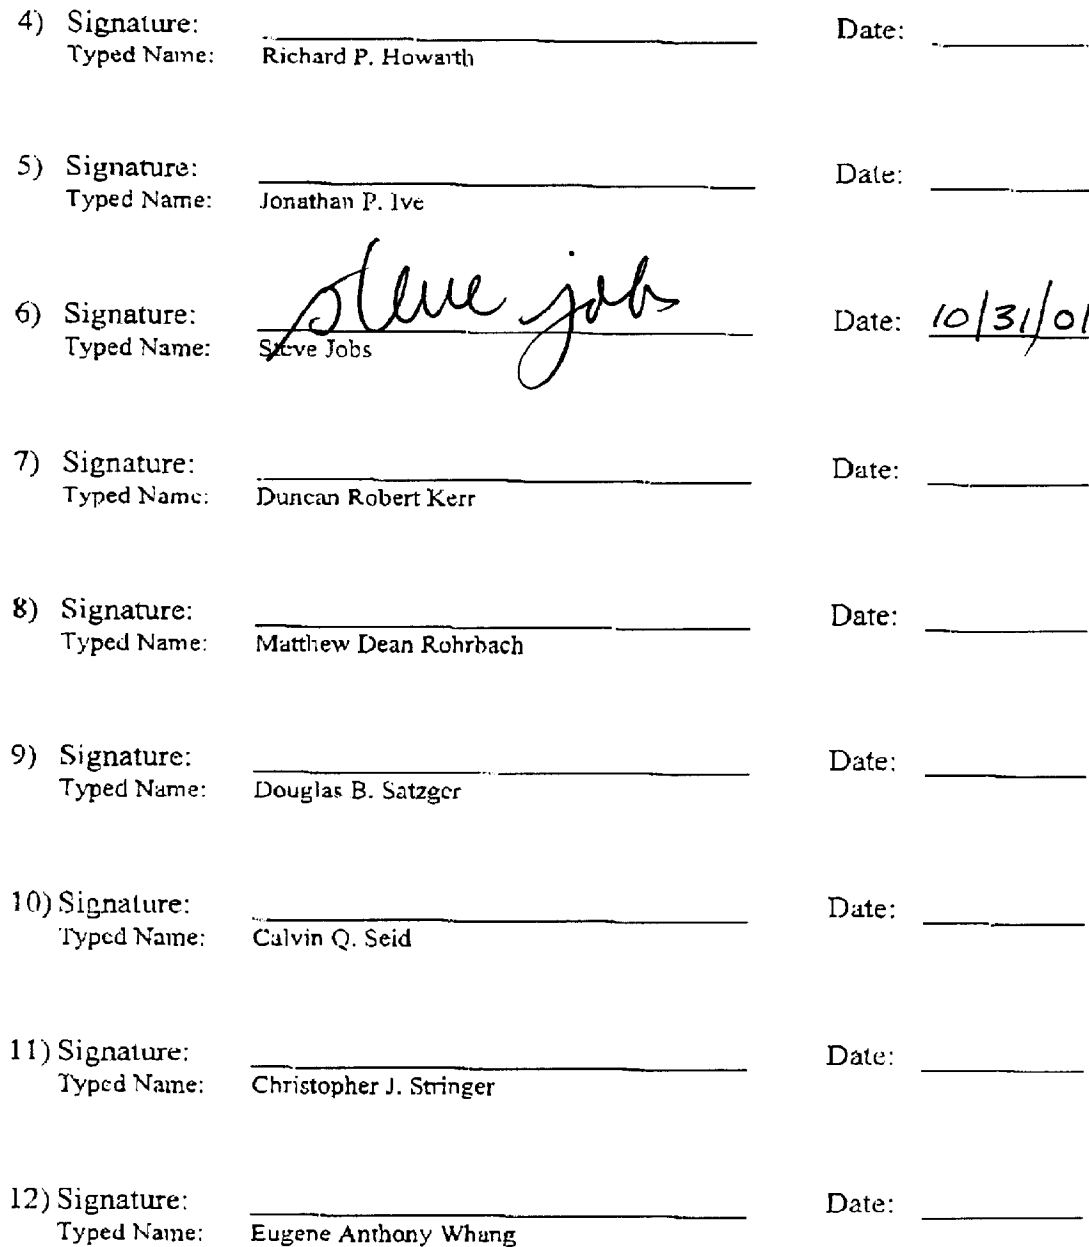 4) Signature: Date:
Typed Name: Richard P. Howarth
5) Signature: Date:
Typed Name: Jonathan P. Ive
6) Signature: steve jobs Date: 10/31/01
Typed Name: Steve Jobs
7) Signature: Date:
Typed Name: Duncan Robert Kerr
8) Signature: Date:
Typed Name: Matthew Dean Rohrbach
9) Signature: Date:
Typed Name: Douglas B. Satzger
10) Signature: Date:
Typed Name: Calvin Q. Seid
11) Signature: Date:
Typed Name: Christopher J. Stringer
12) Signature: Date:
Typed Name: Eugene Anthony Whang